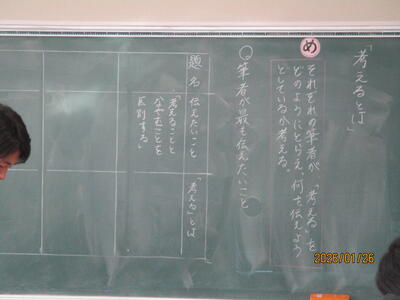 「考えるとは」
め
それぞれの筆者が、「考える」を
どのようにとらえ、何を伝えよう
としているか考える。
筆者が最も伝えたいこと
題名
伝えたいこと
「考えることと
なやむことを
区別する」
「考える」とは
2025/01/26